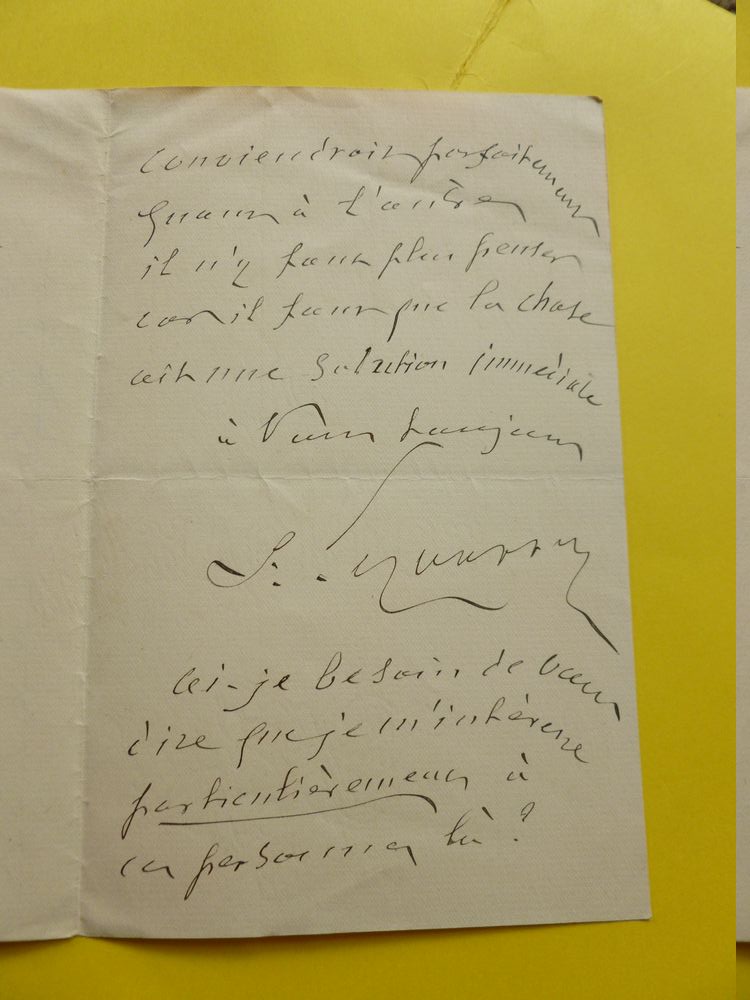 conviendrait parfaitement
quant à l'autre
il n'y faut plus penser
car il faut que la chose
ait une solution immédiate
à vous toujours
ai-je besoin de vous
dire que je m'intéresse
particulièrement à
ces personnes là ?